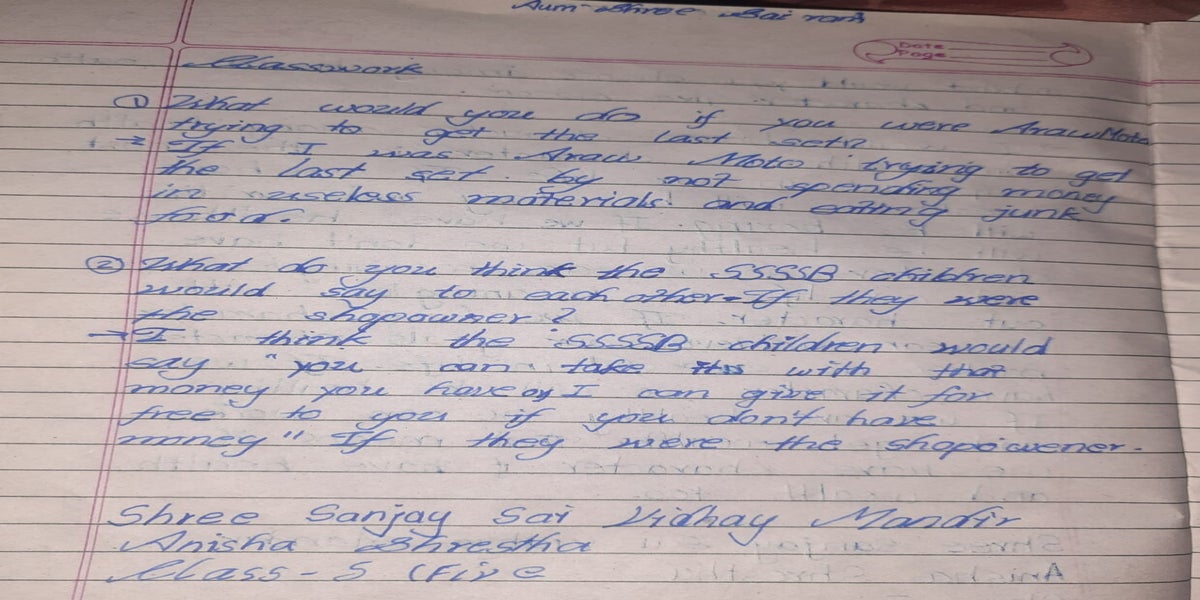 Aum Shree Sai ram
Date
Page
Classwork
① What would you do if you were Araw Moto
trying to get the last set?
→ If I was Araw Moto trying to get
the last set by not spending money
in useless materials and eating junk
food.
② What do you think the SSSSB children
would say to each other. If they were
the shopowner?
→ I think the SSSSB children would
say "you can take with that
money you have or I can give it for
free to you if you don't have
money" If they were the shopowener.
Shree Sanjay Sai Vidhay Mandir
Anisha Shrestha
Class - 5 (Five